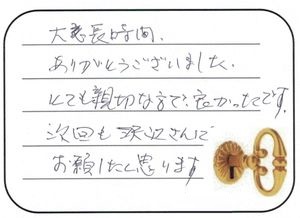 大変長時間、
ありがとうございました。
とても親切な方で、良かったです。
次回も さんに
お願いしたく思います